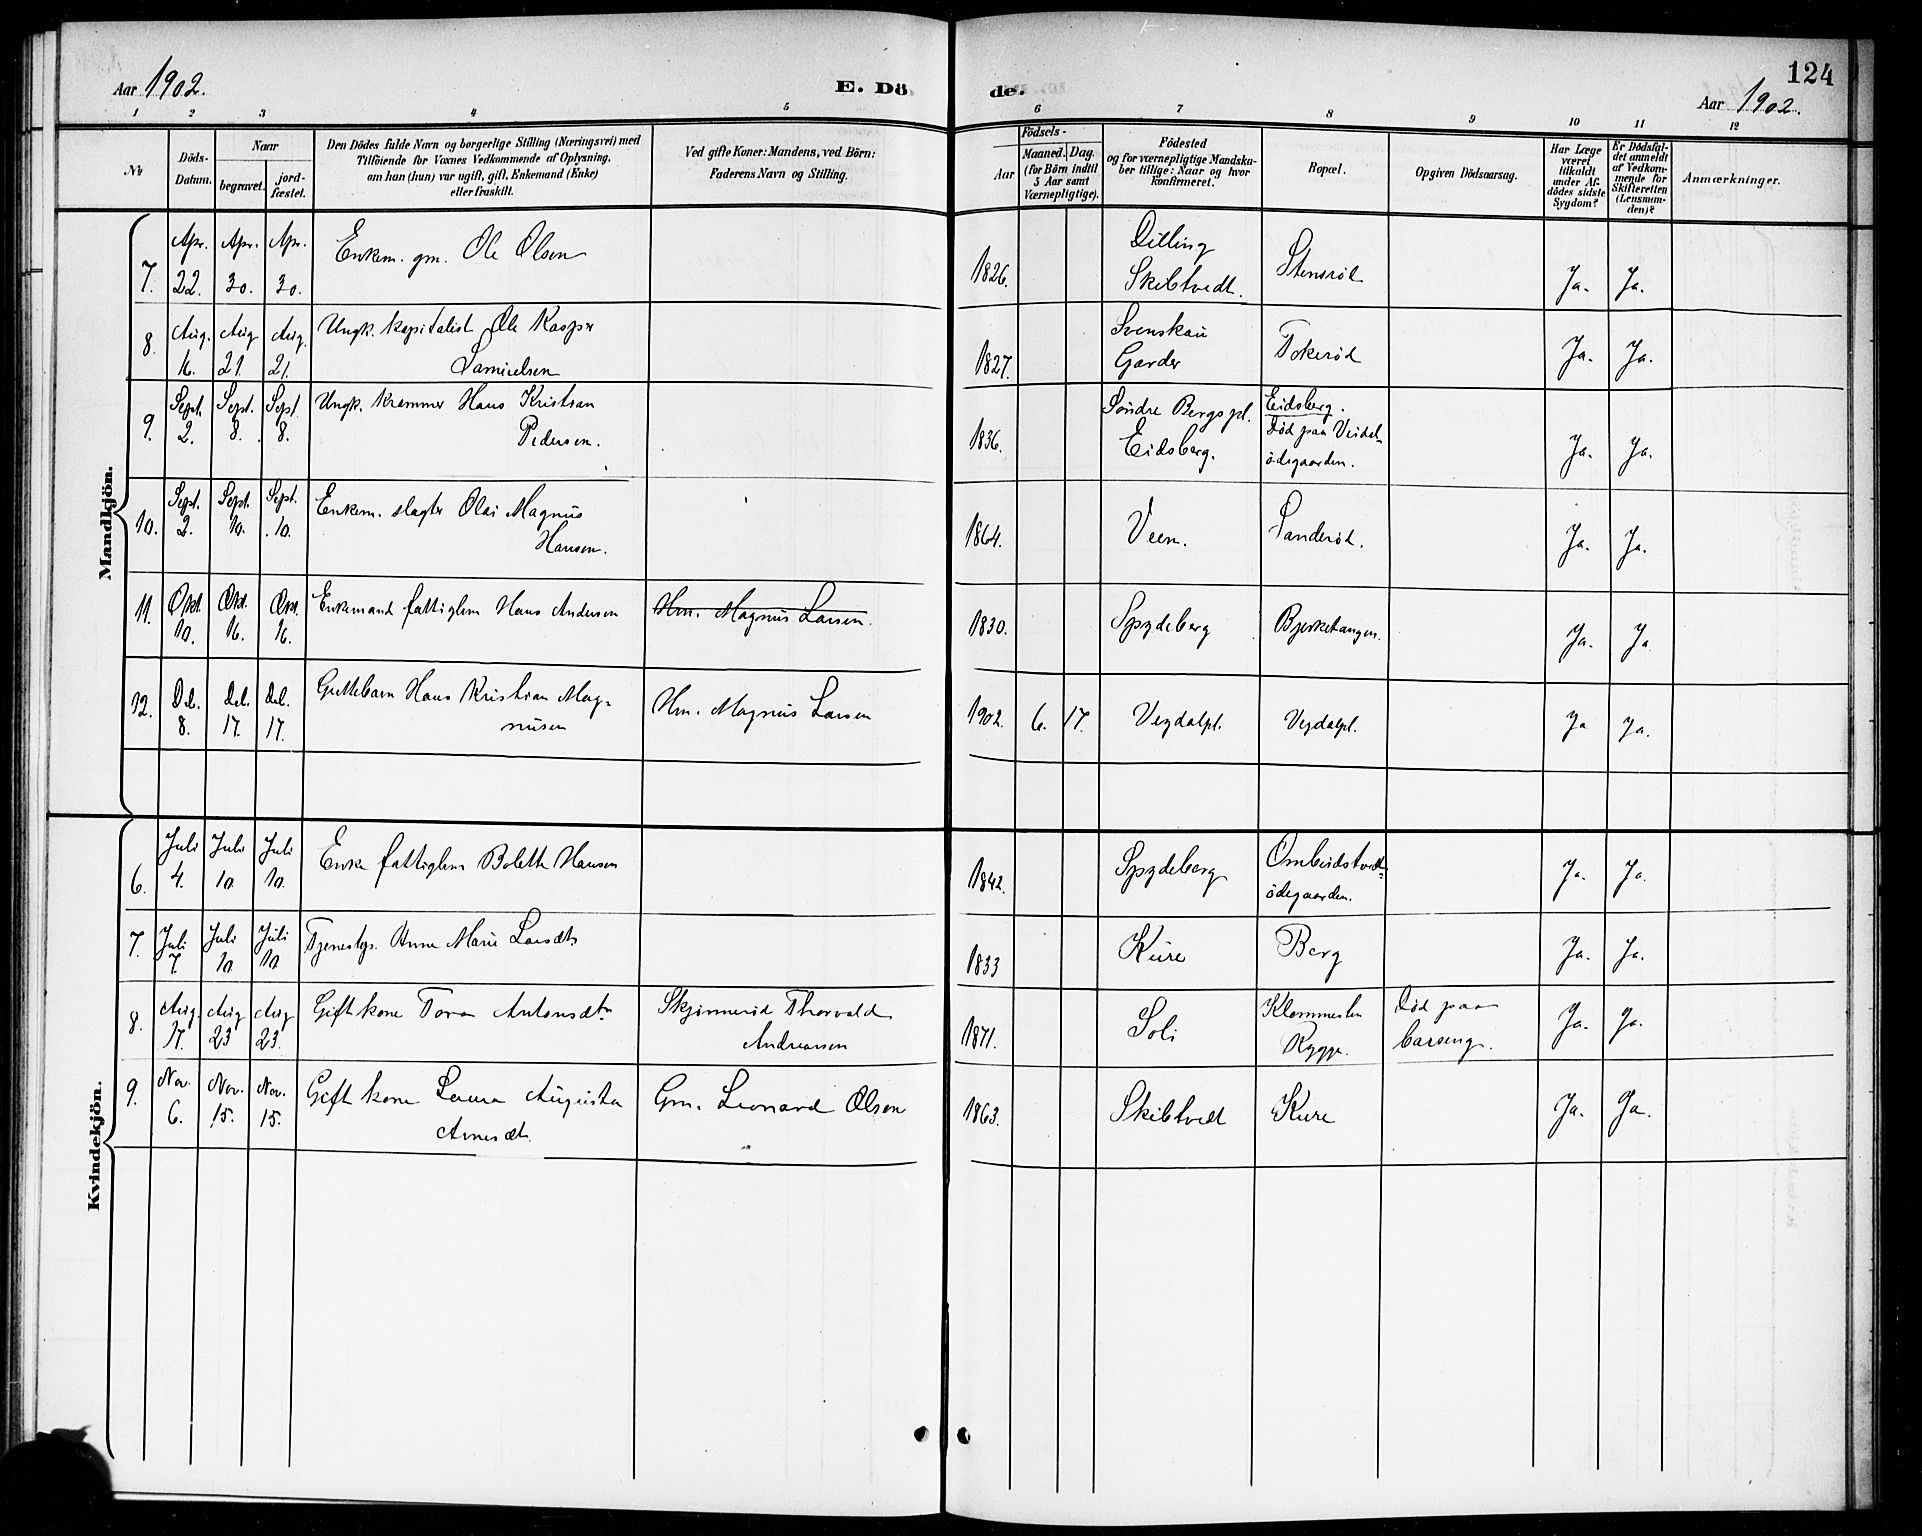 Aar 1902.
E. Dö
de.
124
Aar 1902.
1 2 3 4 5 6 7 8 9 10 11 12
№
Döds-
Datum.
Naar
begravet.
jord-
fæstet.
Den Dödes fulde Navn og borgerlige Stilling (Næringsvei) med
Tilföiende for Voxnes Vedkommende af Oplysning,
om han (hun) var ugift, gift, Enkemand (Enke)
eller fraskilt.
Ved gifte Koner: Mandens, ved Börn:
Faderens Navn og Stilling.
Födsels-
Aar
Maaned. Dag.
(for Börn indtil
5 Aar samt
Værnepligtige).
Födested
og for værnepligtige Mandska-
ber tillige: Naar og hvor
konfirmeret.
Bopæl.
Opgiven Dödsaarsag.
Har Læge
været
tilkaldt
under Af-
dödes sidste
Sygdom?
Er Dödsfal-
det anmeldt
af Vedkom-
mende for
Skifteretten
(Lensman-
den)?
Anmærkninger.
Mandkjön.
7. Apr. 22. Apr. 30. Apr. 30. Enkem. gm. Ole Olsen 1826. Dilling Skibtvedt. Stensröd Ja. Ja.
8. Aug. 16. Aug 21. Aug. 21. Ungk. kapitalist Ole Kasper Samuelsen 1827. Svenskau Garder Tokeröd Ja. Ja.
9. Sept. 2. Sept. 8. Sept. 8. Ungk. kræmmer Hans Kristian Pedersen. 1836. Söndre Bergs pl. Eidsberg. Eidsberg. Död paa Veidal- ödegaarden. Ja. Ja.
10. Sept. 2. Sept. 10. Sept. 10. Enkem. slagter Olai Magnus Hansen. 1864. Veen. Sanderöd. Ja. Ja.
11. Okt. 10. Okt. 16. Okt. 16. Enkemand fattiglem Hans Andersen Hm. Magnus Larsen. 1830. Spydeberg Bjerketangen. Ja. Ja
12. Dec. 8. Dec. 17. Dec. 17. Guttebarn Hans Kristian Mag- nusen Hm. Magnus Larsen 1902. 6. 17. Veydalpl. Veydalpl. Ja Ja.
Kvindekjön.
6. Juli 4. Juli 10. Juli 10. Enke fattiglem Bolette Hansen 1842. Spydeberg Ombudstvedt- ödegaarden. Ja. Ja.
7. Juli 7. Juli 10 Juli 10. Tjenestep. Anne Marie Larsdt. 1833 Kure Berg Ja. Ja.
8. Aug. 17. Aug 23 Aug 23. Gift kone Tora Antonsdtr Skjönneröd Thorvald Andreassen 1871. Soli Rygge. Död paa barseng. Ja. Ja.
9. Nov. 6. Nov. 15. Nov. 15. Gift kone Laura Augusta Arnesdt. Gm. Leonard Olsen 1863. Skibtvedt Kure Ja. Ja.